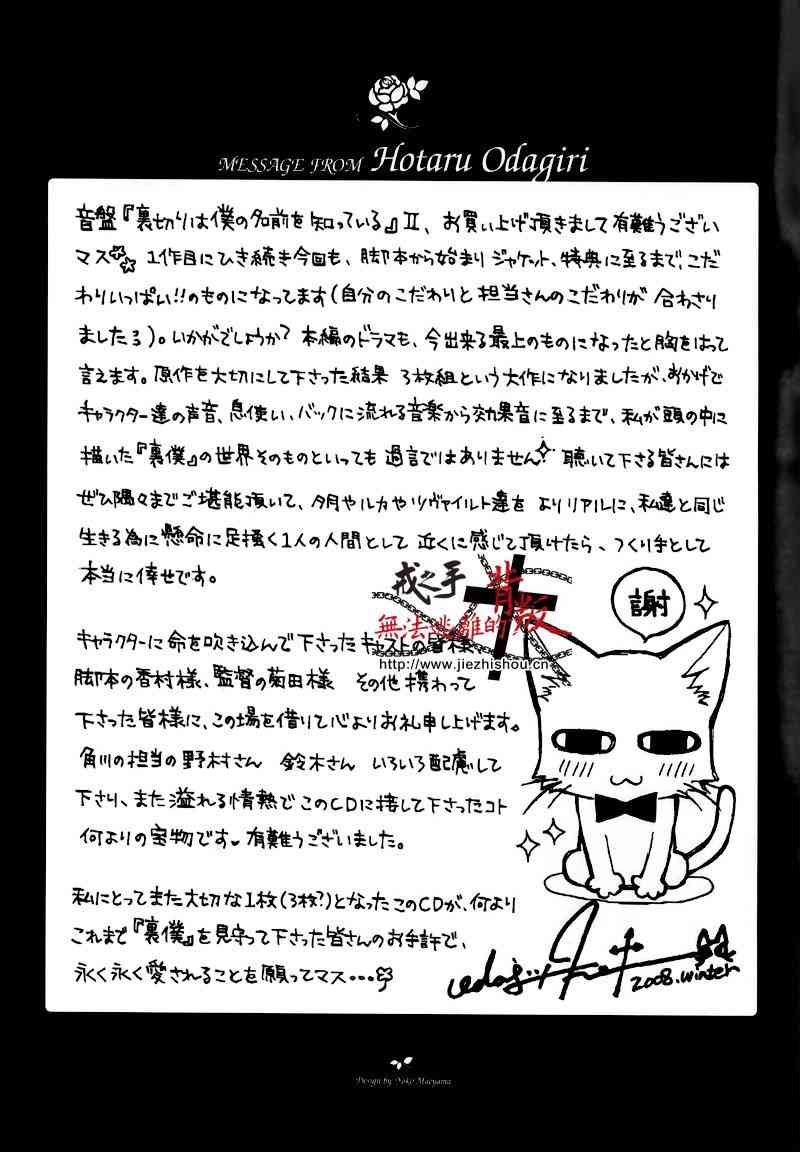 MESSAGE FROM Hotaru Odagiri
音盤『裏切りは僕の名前を知っている』II、お買い上げ頂きまして有難うござい
マス 1作目にひき続き今回も、脚本から始まりジャケット、特典に至るまで、こだ
わりいっぱい!!のものになってます(自分のこだわりと担当さんのこだわりが合わさり
ましたよ)。いかがでしょうか?本編のドラマも、今出来る最上のものになったと胸をはって
言えます。原作を大切にして下さった結果 3枚組という大作になりましたが、おかげで
キャラクター達の声音、息使い、バックに流れる音楽から効果音に至るまで、私が頭の中に
描いた『裏僕』の世界そのものといっても過言ではありません! 聴いて下さる皆さんには
ぜひ隅々までご堪能頂いて、夕月やルカやツヴァイルト達をよりリアルに、私達と同じ
生きる為に懸命に足掻く1人の人間として近くに感じて頂けたら、つくり手として
本当に倖せです。
戒之手 背叛
無法逃離的
http://www.jiezhishou.cn
謝
キャラクターに命を吹き込んで下さったキャストの皆様
脚本の香村様、監督の菊田様 その他携わって
下さった皆様に、この場を借りて心よりお礼申し上げます。
角川の担当の野村さん 鈴木さん いろいろ配慮して
下さり、また溢れる情熱でこのCDに接して下さったコト
何よりの宝物です♥有難うございました。
私にとってまた大切な1枚(3枚?)となったこのCDが、何より
これまで『裏僕』を見守って下さった皆さんのお手許で、
永く永く愛されることを願ってマス・・・
2008.winter
Design by Yoko Maeyama